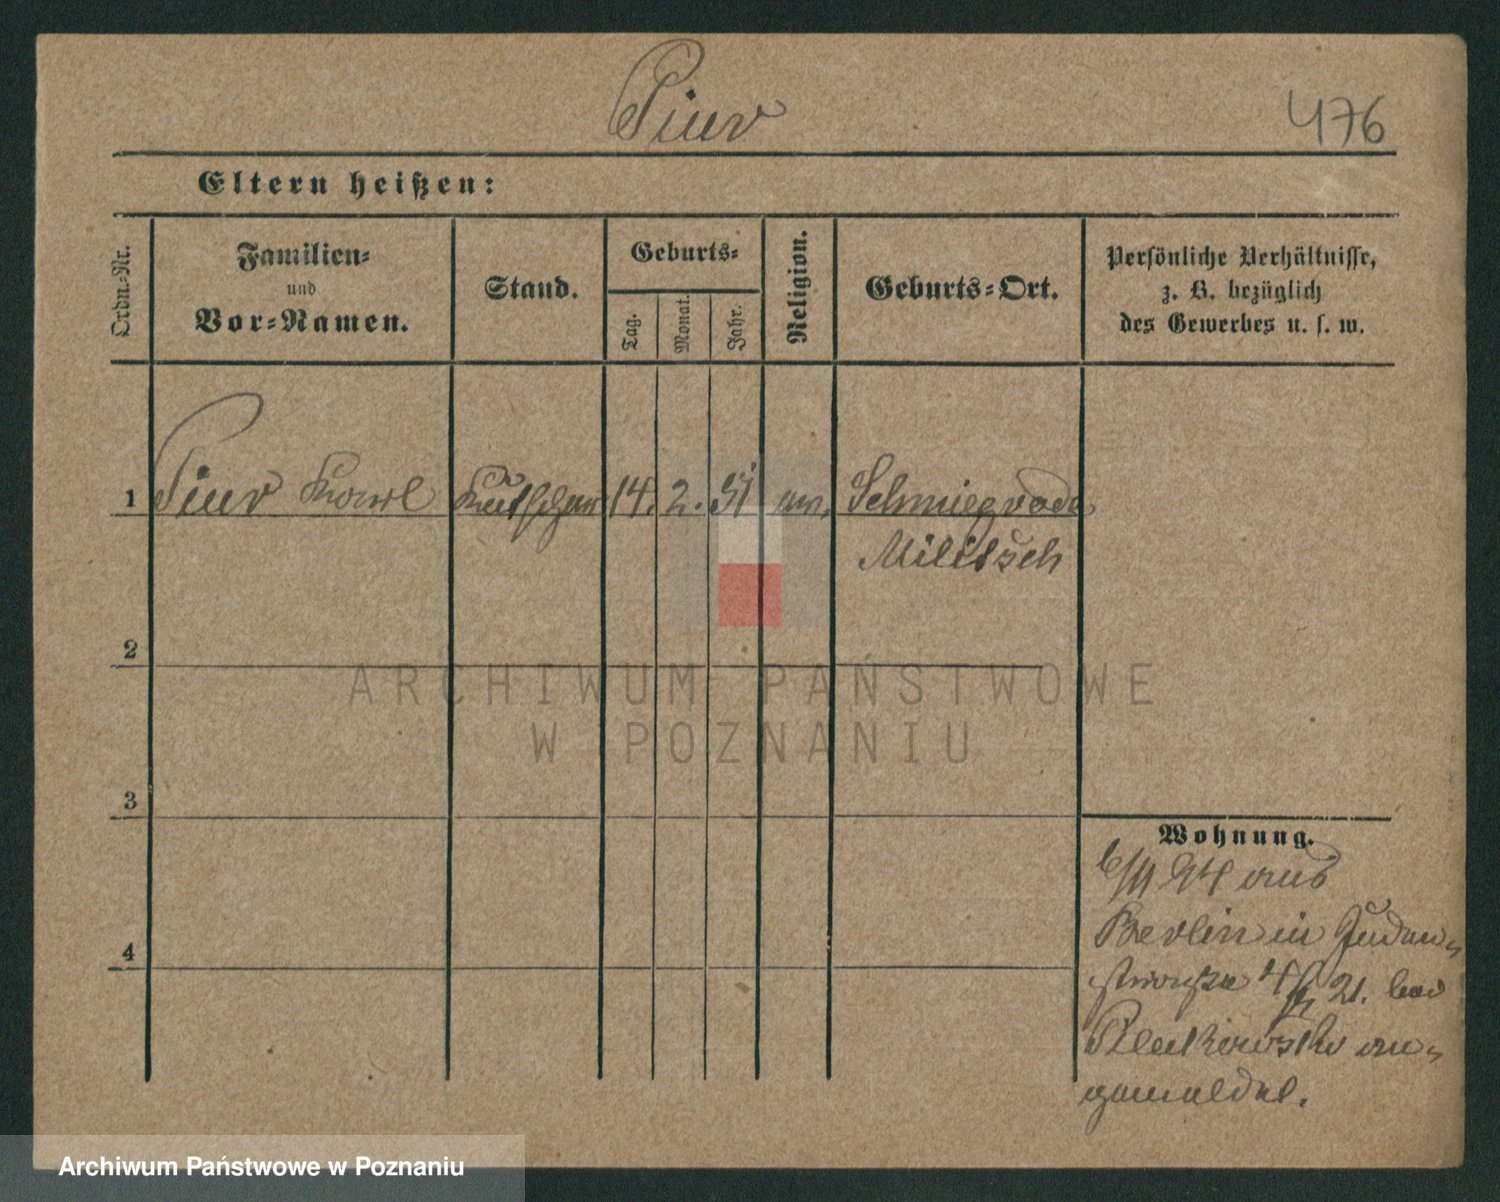 Piur
476
Eltern heißen:
Ordn.-Nr.
Familien-
und
Vor-Namen.
Stand.
Geburts-
Tag.
Monat.
Jahr.
Religion.
Geburts-Ort.
Persönliche Verhältnisse,
z. B. bezüglich
des Gewerbes u. s. w.
1
Piur Karl
Kutscher
14.
2.
51
ev.
Schmiegrode
Militsch
2
3
4
Wohnung.
6/11 94 aus
Berlin in Juden-
straße 21. bei
an-
gemeldet.
ARCHIWUM PAŃSTWOWE
W POZNANIU
Archiwum Państwowe w Poznaniu